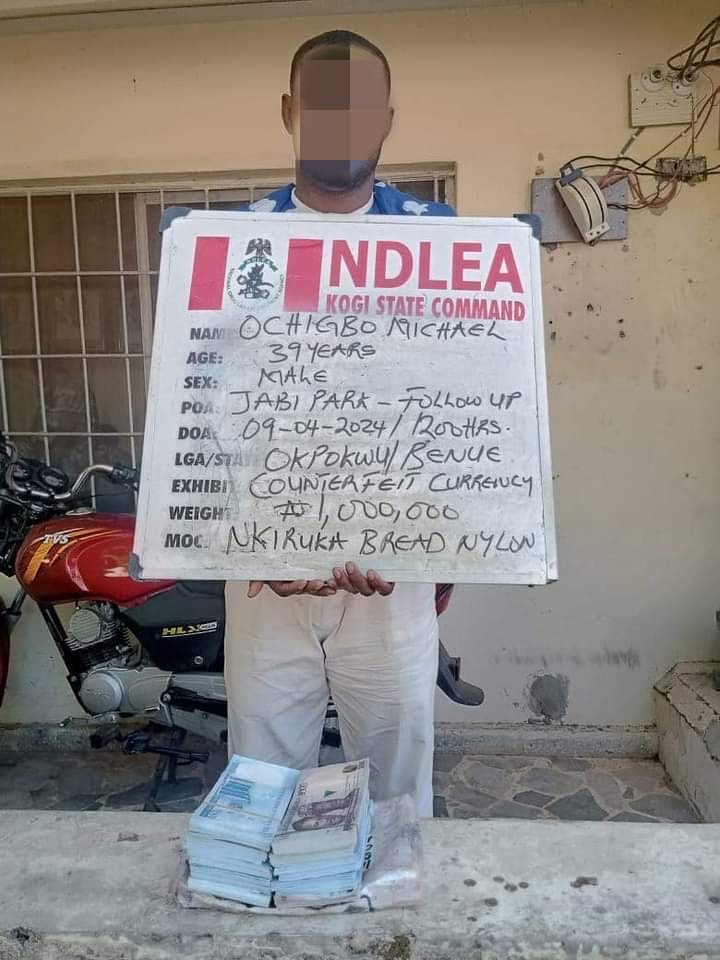 NDLEA
KOGI STATE COMMAND
NAM OCHIGBO MICHAEL
AGE: 39 YEARS
SEX: MALE
POA: JABI PARK - FOLLOW UP
DOA: 09-04-2024/1200HRS.
LGA/STA OKPOKWU/BENUE
EXHIBI COUNTERFEIT CURRENCY
WEIGH ₦1,000,000
MOC. NKIRUKA BREAD NYLON
TVS
HLX